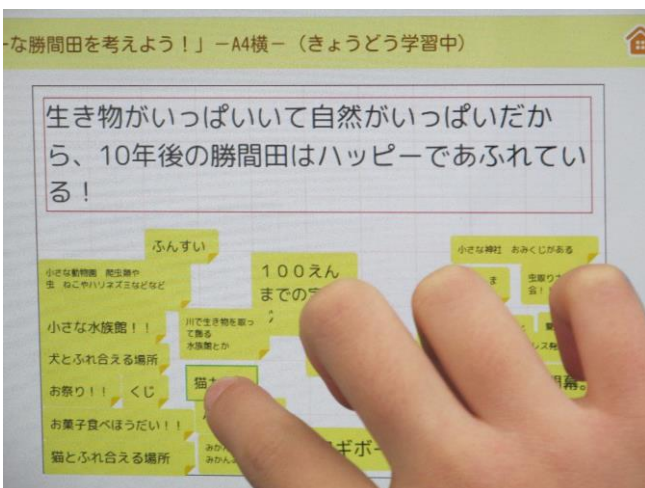 な勝間田を考えよう！」－A4横－（きょうどう学習中）
生き物がいっぱいいて自然がいっぱいだか
ら、10年後の勝間田はハッピーであふれてい
る！
ふんすい
小さな動物園　爬虫類や
虫　ねこやハリネズミなどなど
小さな水族館！！
犬とふれ合える場所
お祭り！！　くじ
お菓子食べほうだい！！
猫とふれ合える場所
川で生き物を取っ
て飾る
水族館とか
猫カ
１００えん
までの
小さな神社　おみくじがある
虫取り
会！